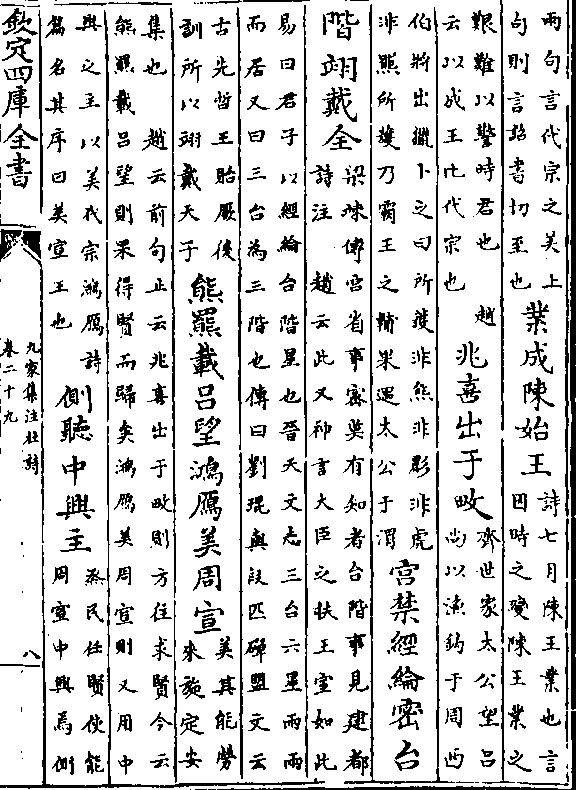 兩句言代宗之美上
句則言詔書切至也
業成陳始王
詩七月陳王業也言
因時之變陳王業之
艱難以警時君也　趙
云以成王比代宗也
兆喜出于畋
齊世家太公望呂
尚以漁釣于周西
伯將出獵卜之曰所獲非熊非彲非虎
非羆所獲乃霸王之輔果遇太公于渭
宮禁經綸密台
階翊戴全
梁竦傳宮省事密莫有知者台階事見建都
詩注　趙云此又神言大臣之扶王室如此
易曰君子以經綸台階星也晉天文志三台六星兩兩
而居又曰三台為三階也傳曰劉琨與段匹磾盟文云
古先哲王貽厥後
訓所以翊戴天子
熊羆載呂望鴻鴈美周宣
美其能勞
來旋定安
集也　趙云前句止云兆喜出于畋則方往求賢今云
熊羆載呂望則果得賢而歸矣鴻鴈美周宣則又用中
興之主以美代宗鴻鴈詩
篇名其序曰美宣王也
側聽中興主
烝民任賢使能
周宣中興焉側
欽定四庫全書
九家集注杜詩
卷二十九
八